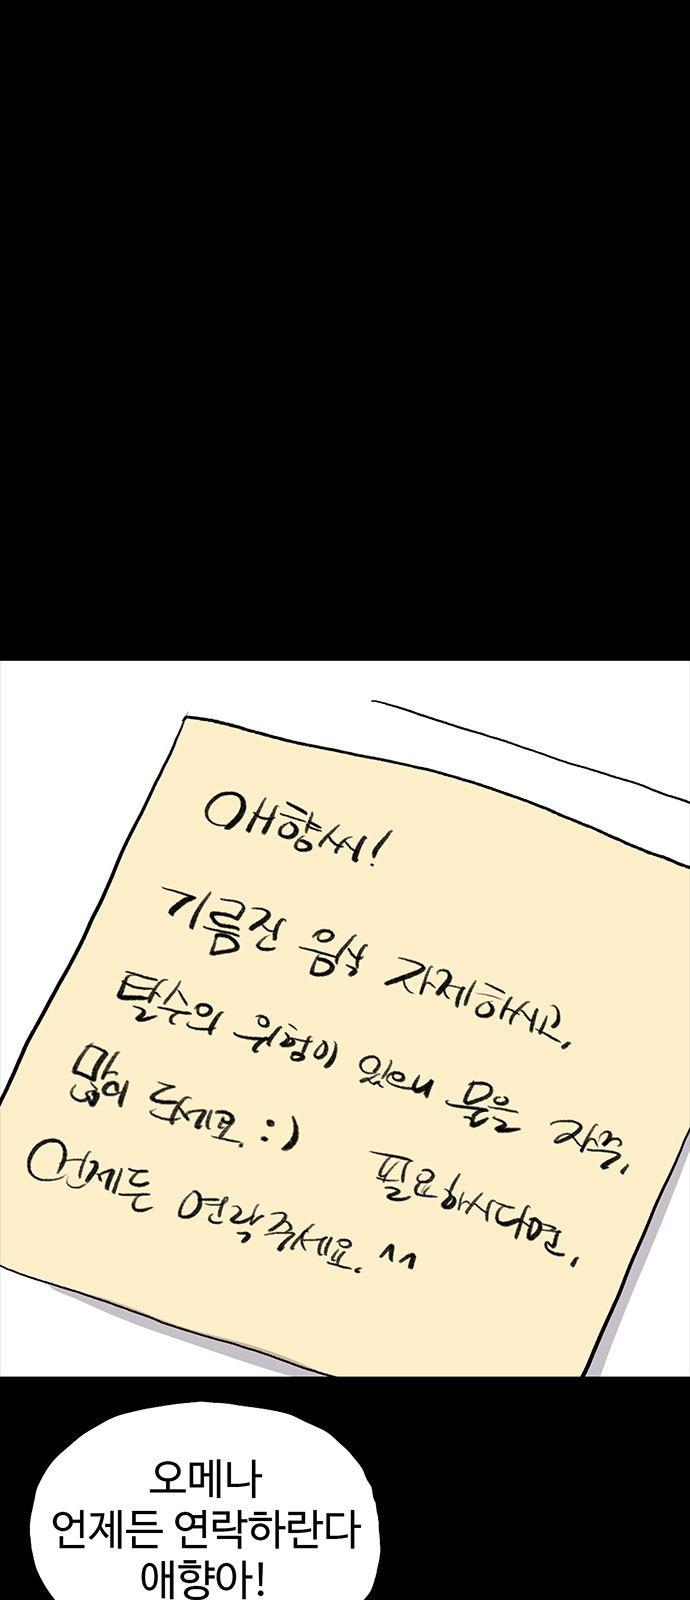 애향씨!
기름진 음식 자제하시고,
탈수의 위험이 있으니 물을 자주,
많이 드세요. :) 필요하시다면,
언제든 연락주세요. ^^
오메나
언제든 연락하란다
애향아!